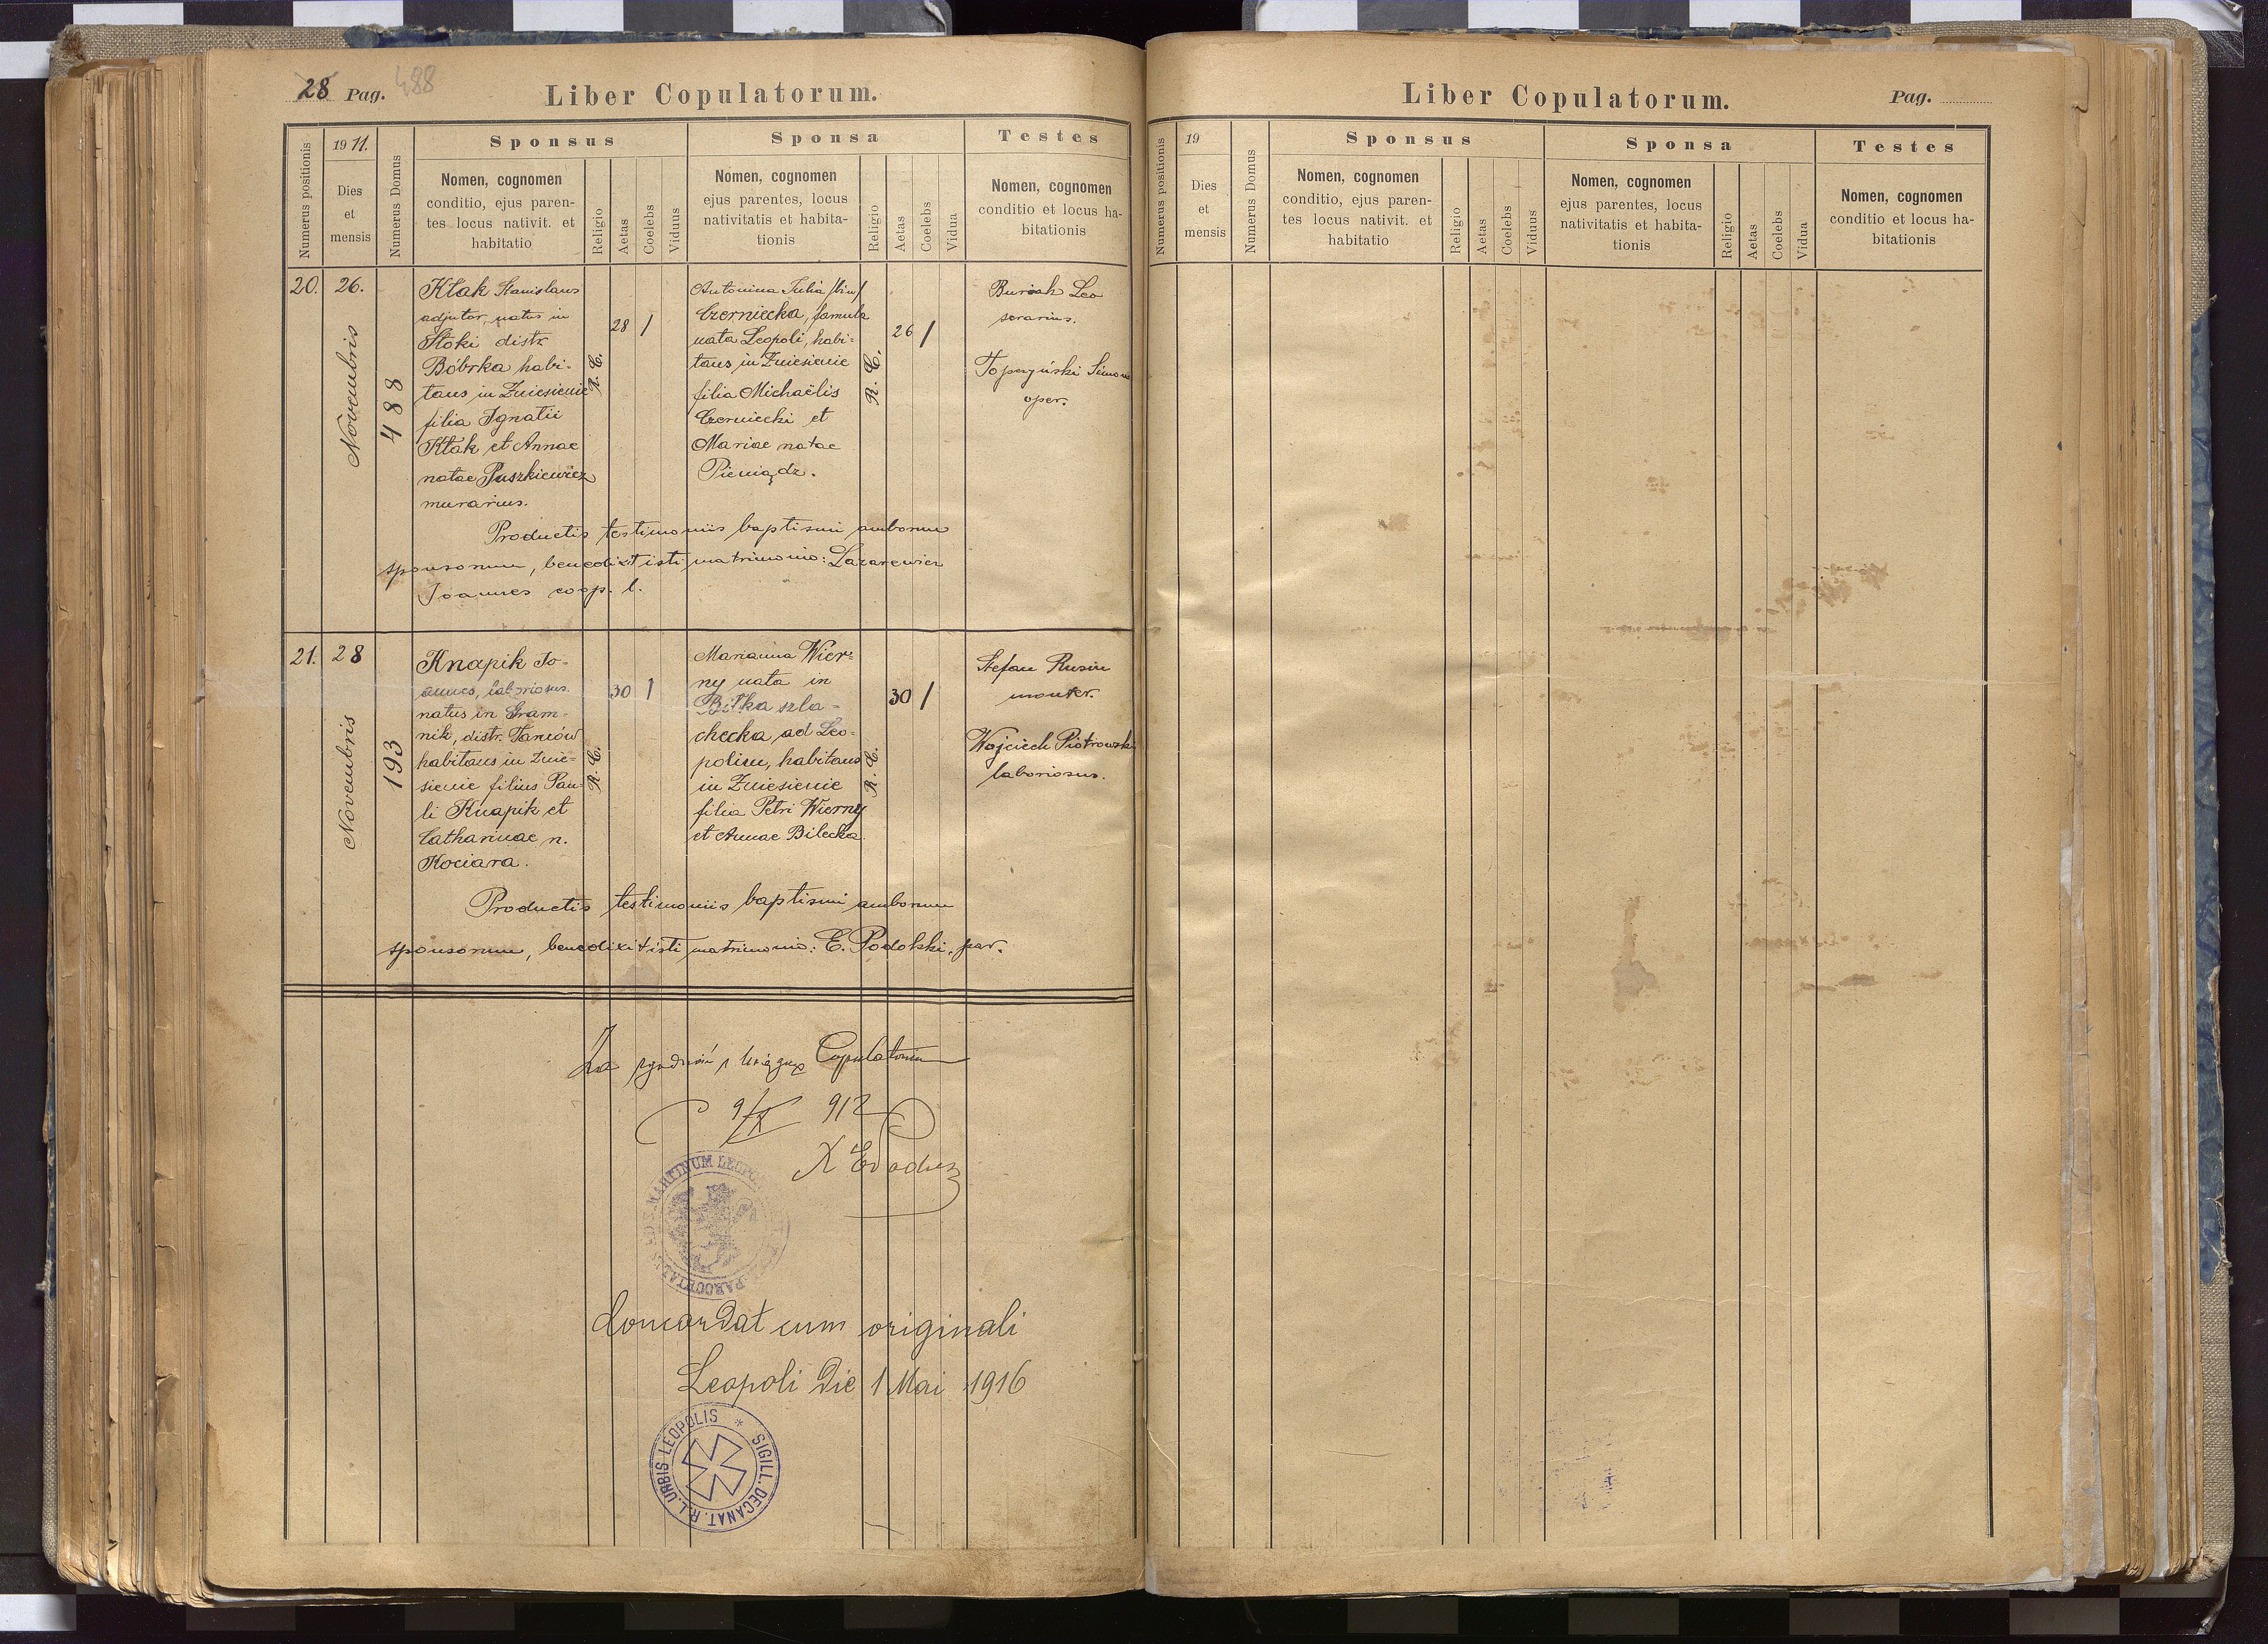 28 Pag. 488
Liber Copulatorum.
Numerus positionis
19 11.
Dies
et
mensis
Numerus Domus
Sponsus
Nomen, cognomen
conditio, ejus paren-
tes locus nativit. et
habitatio
Religio
Aetas
Coelebs
Viduus
Sponsa
Nomen, cognomen
ejus parentes, locus
nativitatis et habita-
tionis
Religio
Aetas
Coelebs
Vidua
Testes
Nomen, cognomen
conditio et locus ha-
bitationis
20.
26.
Novembris
488
Kłak Stanislaus
adjutor, natus in
Stoki distr.
Bóbrka habi-
tans in Zniesienie
filia Ignatii
Kłak et Annae
natae Puszkiewicz
murarius.
R. C.
28
/
Antonina Julia /bin/
Czerniecka, famula
nata Leopoli, habi-
tans in Zniesienie
filia Michaëlis
Czerniecki et
Mariae natae
Pieniądz.
R. C.
26
/
Buriak Leo
serarius.
Topczyński Simon
oper.
Productis testimoniis baptismi amborum
sponsorum, benedixit isti matrimonio: Lazarewicz
Joannes coop. l.
21.
28
Novembris
193
Knapik Jo-
annes, laboriosus.
natus in Gram-
nik, distr. Tarnów
habitans in Znie-
sienie filius Pau-
li Knapik et
Catharinae n.
Kociara.
R. C.
30
/
Marianna Wier-
ny nata in
Biłka szla-
checka ad Leo-
polim, habitans
in Zniesienie
filia Petri Wierny
et Annae Bilecka
R. C.
30
/
Stefan Rusin
monter.
Wojciech Piotrowski
laboriosus.
Productis testimoniis baptismi amborum
sponsorum, benedixit isti matrimonio: E. Podolski, par.
Za zgodność z księgą Copulatorum
9/X 912
MARTINUM LEOPOLI
Concordat cum originali
Leopoli Die 1 Mai 1916
SIGILL. DECANAT. R. L. URBIS LEOPOLIS *
Liber Copulatorum.
Pag.
Numerus positionis
19
Dies
et
mensis
Numerus Domus
Sponsus
Nomen, cognomen
conditio, ejus paren-
tes locus nativit. et
habitatio
Religio
Aetas
Coelebs
Viduus
Sponsa
Nomen, cognomen
ejus parentes, locus
nativitatis et habita-
tionis
Religio
Aetas
Coelebs
Vidua
Testes
Nomen, cognomen
conditio et locus ha-
bitationis